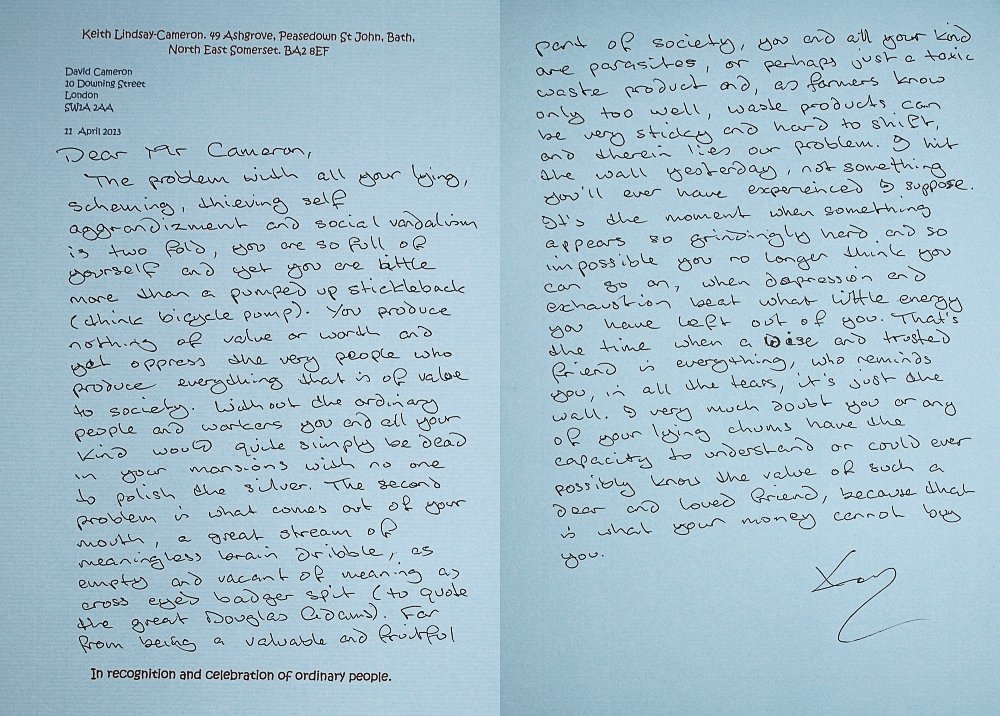 Keith Lindsay-Cameron. 49 Ashgrove, Peasedown St John, Bath,
North East Somerset. BA2 8EF
David Cameron
10 Downing Street
London
SW1A 2AA
11 April 2013
Dear Mr Cameron,
The problem with all your lying,
scheming, thieving self
aggrandizment and social vandalism
is two fold, you are so full of
yourself and yet you are little
more than a pumped up stickleback
(think bicycle pump). You produce
nothing of value or worth and
yet oppress the very people who
produce everything that is of value
to society. Without the ordinary
people and workers you and all your
kind would quite simply be dead
in your mansions with no one
to polish the silver. The second
problem is what comes out of your
mouth, a great stream of
meaningless brain dribble, as
empty and vacant of meaning as
cross eyed badger spit (to quote
the great Douglas Adams). Far
from being a valuable and fruitful
In recognition and celebration of ordinary people.
part of society, you and all your kind
are parasites, or perhaps just a toxic
waste product and, as farmers know
only too well, waste products can
be very sticky and hard to shift,
and therein lies our problem. I hit
the wall yesterday, not something
you'll ever have experienced I suppose.
It's the moment when something
appears so grindingly hard and so
impossible you no longer think you
can go on, when depression and
exhaustion beat what little energy
you have left out of you. That's
the time when a wise and trusted
friend is everything, who reminds
you, in all the tears, it's just the
wall. I very much doubt you or any
of your lying chums have the
capacity to understand or could ever
possibly know the value of such a
dear and loved friend, because that
is what your money cannot buy
you.